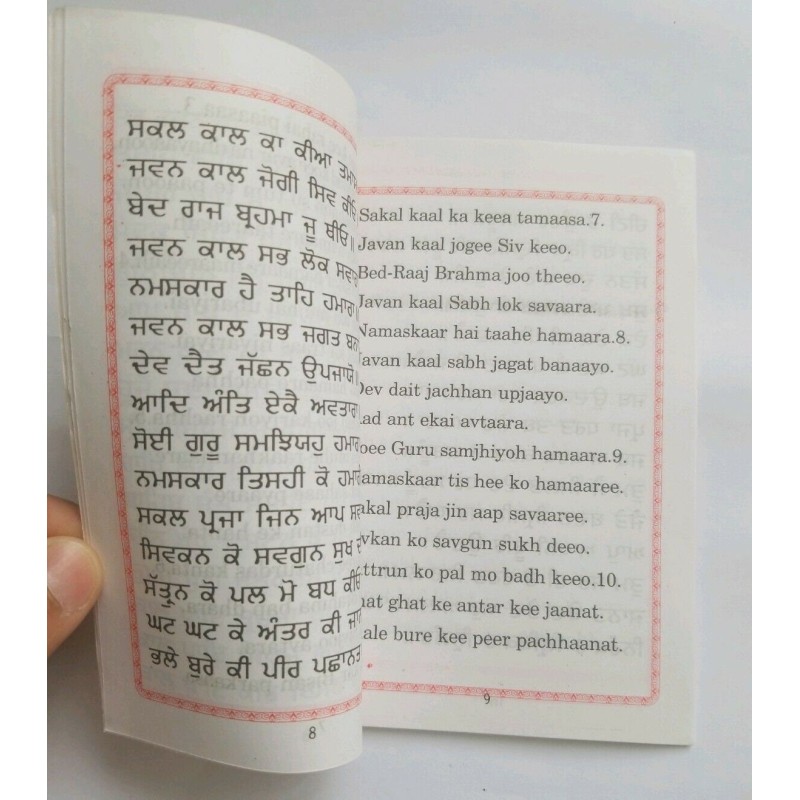 ਸਕਲ ਕਾਲ ਕਾ ਕੀਆ
ਜਵਨ ਕਾਲ ਜੋਗੀ ਸਿਵ
ਬੇਦ ਰਾਜ ਬ੍ਰਹਮਾ ਜੂ ਥੀਓ॥
ਜਵਨ ਕਾਲ ਸਭ ਲੋਕ
ਨਮਸਕਾਰ ਹੈ ਤਾਹਿ ਹਮਾਰਾ
ਜਵਨ ਕਾਲ ਸਭ ਜਗਤ
ਦੇਵ ਦੈਤ ਜੱਛਨ ਉਪਜਾਯੋ
ਆਦਿ ਅੰਤਿ ਏਕੈ ਅਵਤਾਰਾ
ਸੋਈ ਗੁਰੂ ਸਮਝਿਯਹੁ
ਨਮਸਕਾਰ ਤਿਸਹੀ ਕੋ
ਸਕਲ ਪ੍ਰਜਾ ਜਿਨ ਆਪ
ਸਿਵਕਨ ਕੋ ਸਵਗੁਨ ਸੁਖ
ਸੱਤ੍ਰੁਨ ਕੋ ਪਲ ਮੋ ਬਧ
ਘਟ ਘਟ ਕੇ ਅੰਤਰ ਕੀ
ਭਲੇ ਬੁਰੇ ਕੀ ਪੀਰ ਪਛਾਨਤ
8
Sakal kaal ka keea tamaasa.7.
Javan kaal jogee Siv keeo.
Bed-Raaj Brahma joo theeo.
Javan kaal Sabh lok savaara.
Namaskaar hai taahe hamaara.8.
Javan kaal sabh jagat banaayo.
Dev dait jachhan upjaayo.
ant ekai avtaara.
Guru samjhiyoh hamaara.9.
tis hee ko hamaaree.
praja jin aap savaaree.
ko savgun sukh deeo.
ko pal mo badh keeo.10.
ghat ke antar kee jaanat.
bure kee peer pachhaanat.
9